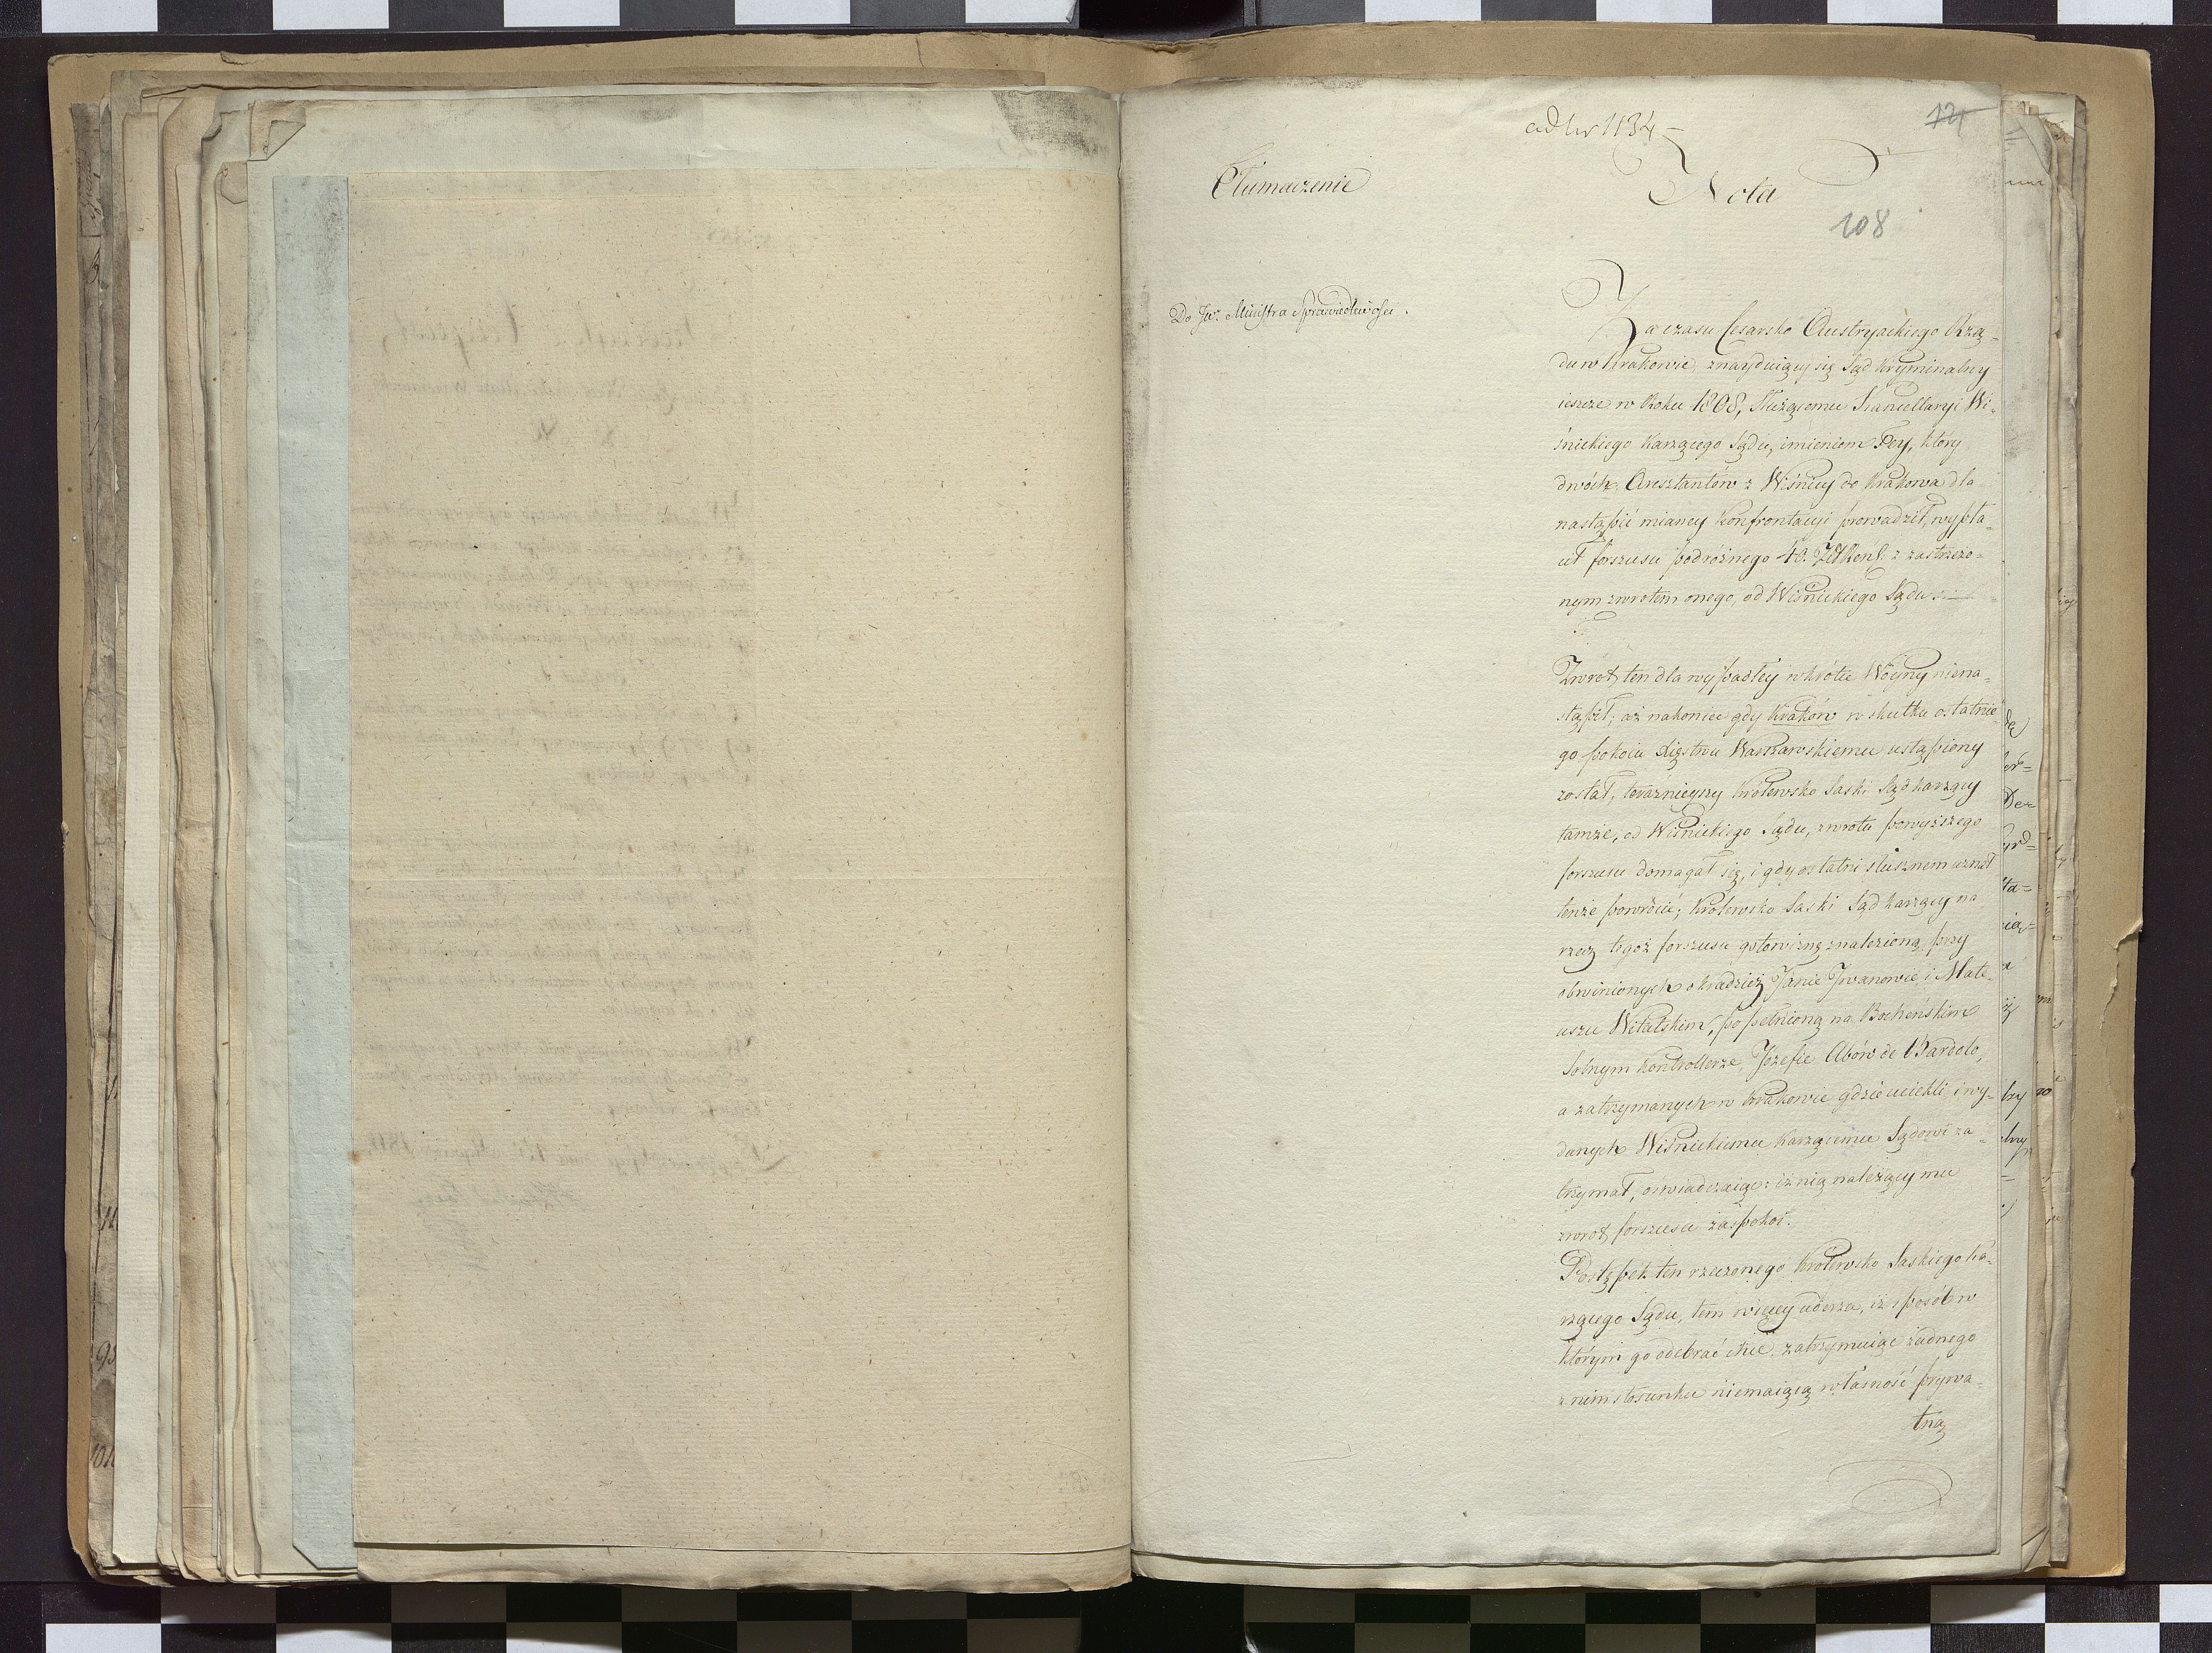 ad Nr 1134
121
Tłumaczenie
Nota
108
Do Jw. Ministra Sprawiedliwości.
Za czasu Cesarsko Austryackiego Rzą-
du w Krakowie, znayduiący się Sąd Kryminalny
ieszcze w Roku 1808, służącemu Kancellaryi Wi-
śnickiego karzącego Sądu, imieniem Fey, który
dwóch Aresztantów z Wiśnicy do Krakowa dla
nastąpić mianey Konfrontacyi prowadził, wypła-
cił forszusu podróżnego 40. Zł Ren. z zastrzeżo-
nym zwrotem onego, od Wiśnickiego Sądu.
Zwrot ten dla wypadłey wkrótce Woyny niena-
stąpił; aż nakoniec gdy Kraków w skutku ostatnie-
go pokoiu Xięstwu Warszawskiemu ustąpiony
został, teraźnieyszy Królewsko Saski Sąd karzący
tamże, od Wiśnickiego Sądu, zwrotu powyższego
forszusu domagał się, i gdy ostatni słusznem uznał
tenże powrócić; Królewsko Saski Sąd karzący na
rzecz tegoż forszusu gotowiznę znalezioną, przy
obwinionych o kradzież Janie Jwanowie i Mate-
uszu Witalskim, popełnioną na Bocheńskim
Solnym Kontrollerze, Józefie Abów de Bardolo,
a zatrzymanych w Krakowie gdzie uciekli i wy-
danych Wiśnickiemu karzącemu Sądowi za-
trzymał, oświadczaiąc: iż nią należący mu
zwrot forszusu zaspokoi.
Postępek ten rzeczonego Królewsko Saskiego ka-
rzącego Sądu, tem więcey uderza, iż sposób w
którym go odebrać chce, zatrzymuiąc żadnego
z nim stosunku niemaiącą własność prywa-
tną